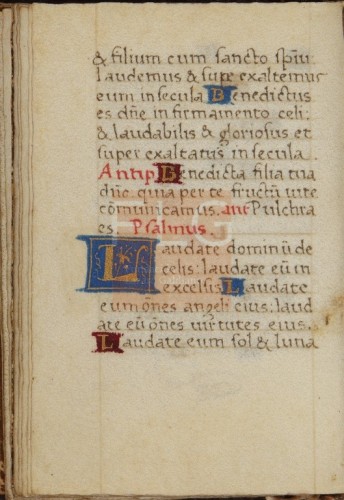 & filium cum sancto spiu:
laudemus & supe exaltemus
eum in secula Benedictus
es dñe in firmamento celi:
& laudabilis & gloriosus et
super exaltatus in secula.
Antip Benedicta filia tua
dño quia per te fructũ vite
cõmunicamus. añ Pulchra
es. Psalmus.
Laudate dominũ de
celis: laudate eũ in
excelsis Laudate
eum oñes angeli eius: laud
ate eũ oñes virtutes eius.
Laudate eum sol & luna